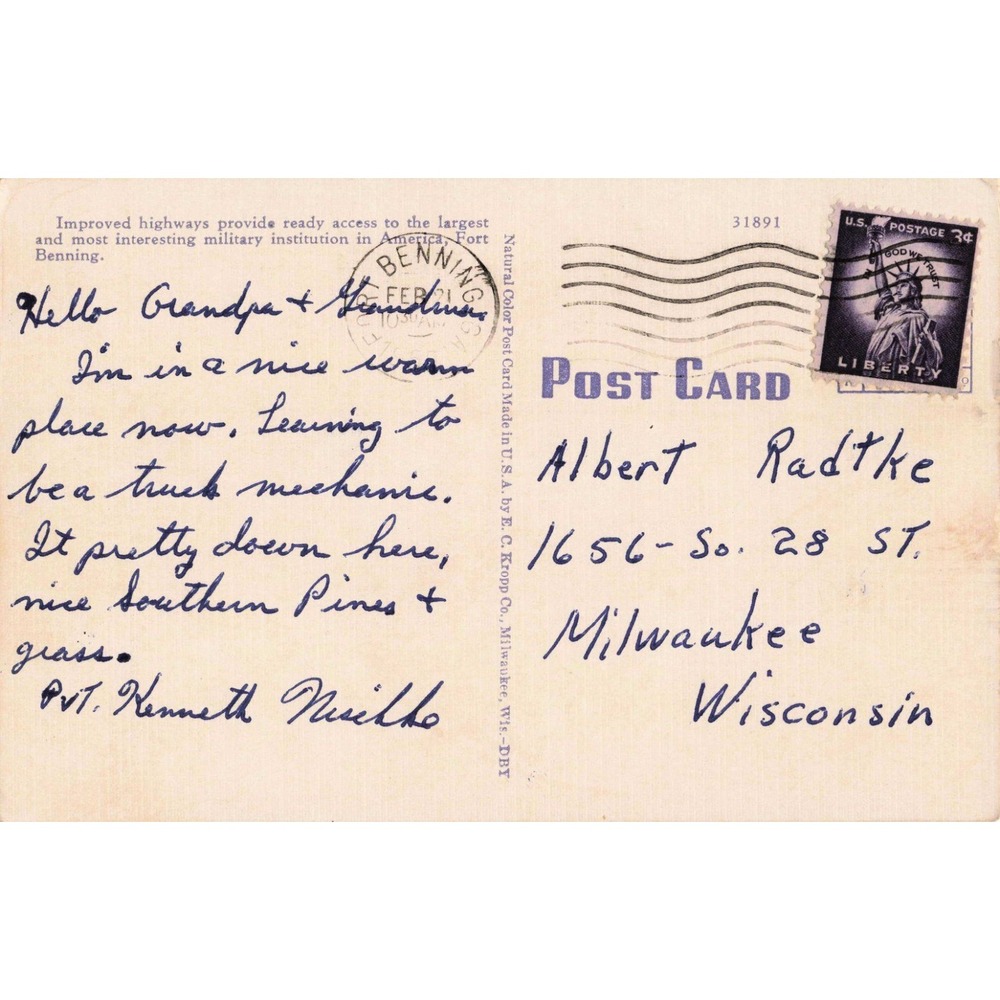 Improved highways provide ready access to the largest
and most interesting military institution in America, Fort
Benning.
Hello Grandpa + Grandma
I'm in a nice warm
place now. Learning to
be a truck mechanic.
It pretty down here,
nice Southern Pines +
grass.
Pvt. Kenneth
Natural Color Post Card Made in U.S.A. by E. C. Kropp Co., Milwaukee, Wis.-DBY
FORT BENNING GA.
FEB 21
1030AM
31891
U.S. POSTAGE 3¢
IN GOD WE TRUST
LIBERTY
POST CARD
Albert Radtke
1656 - So. 28 ST.
Milwaukee
Wisconsin